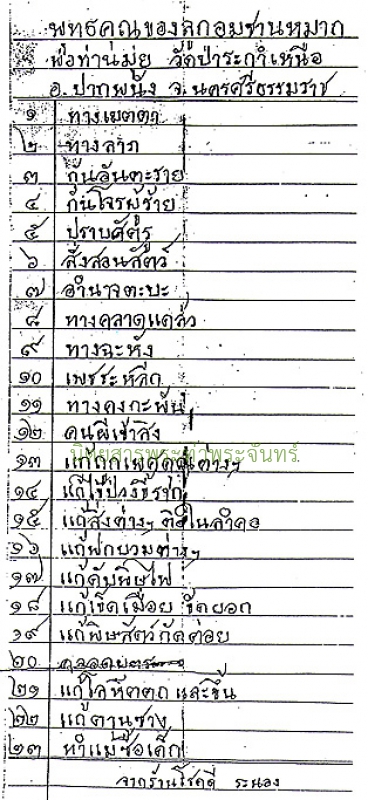 พุทธคุณของลูกอมชานหมาก
พ่อท่านมุ่ย วัดป่าระกำเหนือ
อ.ปากพนัง จ.นครศรีธรรมราช
๑ ทางเมตตา
๒ ทางลาภ
๓ กันอันตะราย
๔ กันโจรผู้ร้าย
๕ ปราบศัตรู
๖ สั่งสอนสัตว์
๗ อำนาจตะบะ
๘ ทางคลาดแคล้ว
๙ ทางฉะหัง
๑๐ เพชระหลีก
๑๑ ทางคงกะพัน
๑๒ คนผีเข้าสิง
นิตยสารพระท่าพระจันทร์
๑๓ แก้ถูกเพศคุณต่างๆ
๑๔ แก้ไข้ป่วง
๑๕ แก้สิ่งต่างๆ ติดในลำคอ
๑๖ แก้ฟกบวมต่างๆ
๑๗ แก้ดับพิษไฟ
๑๘ แก้เร็ดเมื่อย ขัดยอก
๑๙ แก้พิษสัตว์กัดต่อย
๒๐
๒๑ แก้โลหิตตก และขึ้น
๒๒ แก้ตานซาง
๒๓ ทำแม่ซื้อเด็ก
จากร้านโชคดี ระนอง